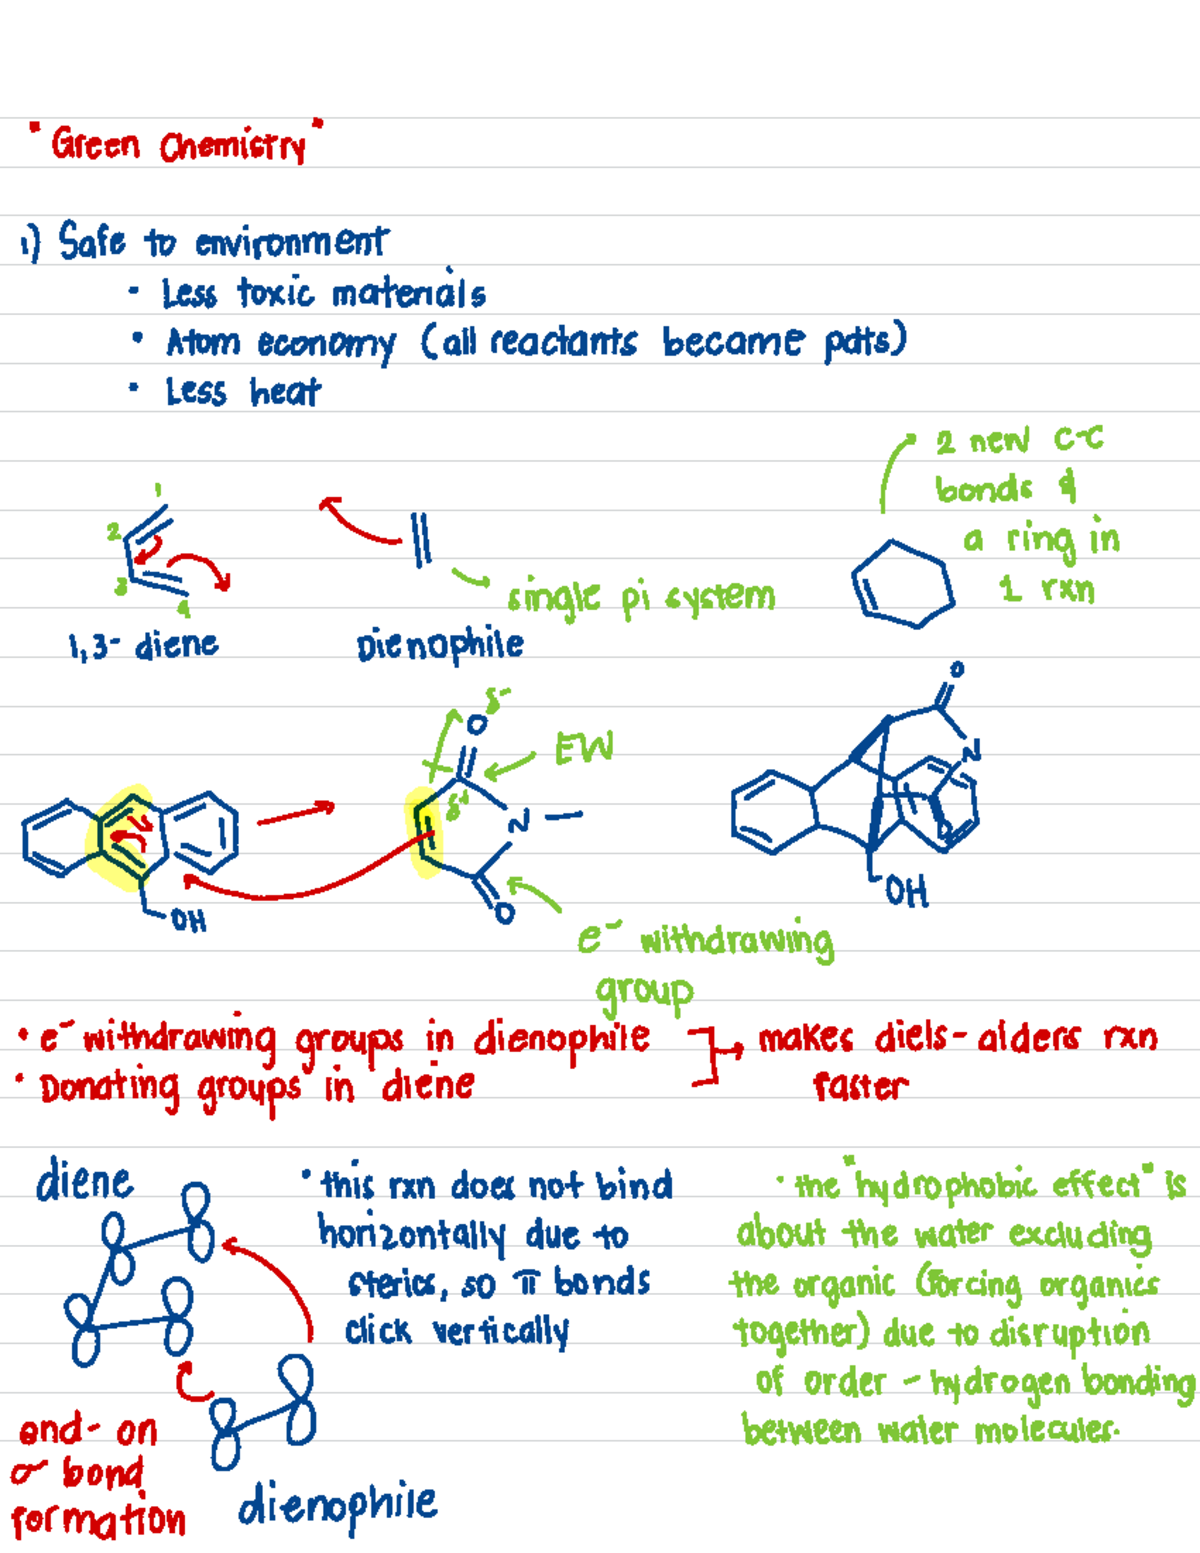 "Green Chemistry"
1) Safe to environment
- Less toxic materials
• Atom economy (all reactants became pdts)
• Less heat
2 new C-C
bonds &
a ring in
1 rxn
1
2
3
4
single pi system
1,3- diene
Dienophile
δ-
O
EW
δ+
N
O
OH
e- withdrawing
group
O
N
O
OH
• e- withdrawing groups in dienophile
• Donating groups in diene
makes diels-alders rxn
faster
diene
• this rxn does not bind
horizontally due to
sterics, so π bonds
click vertically
• the "hydrophobic effect" is
about the water excluding
the organic (forcing organics
together) due to disruption
of order - hydrogen bonding
between water molecules.
end-on
σ bond
formation
dienophile